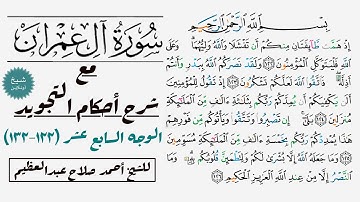 بِسْمِ اللَّهِ الرَّحْمَٰنِ الرَّحِيمِ
إِذْ هَمَّت طَّآئِفَتَانِ مِنكُمْ أَن تَفْشَلَا وَاللَّهُ وَلِيُّهُمَا وَعَلَى
اللَّهِ فَلْيَتَوَكَّلِ الْمُؤْمِنُونَ ١٢٢ وَلَقَدْ نَصَرَكُمُ اللَّهُ بِبَدْرٍ وَأَنتُمْ
أَذِلَّةٌ فَاتَّقُوا اللَّهَ لَعَلَّكُمْ تَشْكُرُونَ ١٢٣ إِذْ تَقُولُ لِلْمُؤْمِنِينَ
أَلَن يَكْفِيَكُمْ أَن يُمِدَّكُمْ رَبُّكُم بِثَلَٰثَةِ ءَالَٰفٍ مِّنَ الْمَلَٰٓئِكَةِ
مُنزَلِينَ ١٢٤ بَلَىٰٓ إِن تَصْبِرُوا وَتَتَّقُوا وَيَأْتُوكُم مِّن فَوْرِهِمْ
هَٰذَا يُمْدِدْكُمْ رَبُّكُم بِخَمْسَةِ ءَالَٰفٍ مِّنَ الْمَلَٰٓئِكَةِ مُسَوِّمِينَ
١٢٥ وَمَا جَعَلَهُ اللَّهُ إِلَّا بُشْرَىٰ لَكُمْ وَلِتَطْمَئِنَّ قُلُوبُكُم بِهِ وَمَا
النَّصْرُ إِلَّا مِنْ عِندِ اللَّهِ الْعَزِيزِ الْحَكِيمِ ١٢٦
سورة آل عمران
مع
شيخ
اونلاين
شرح أحكام التجويد
الوجه السابع عشر (١٢٢-١٣٢)
للشيخ أحمد صلاح عبدالعظيم